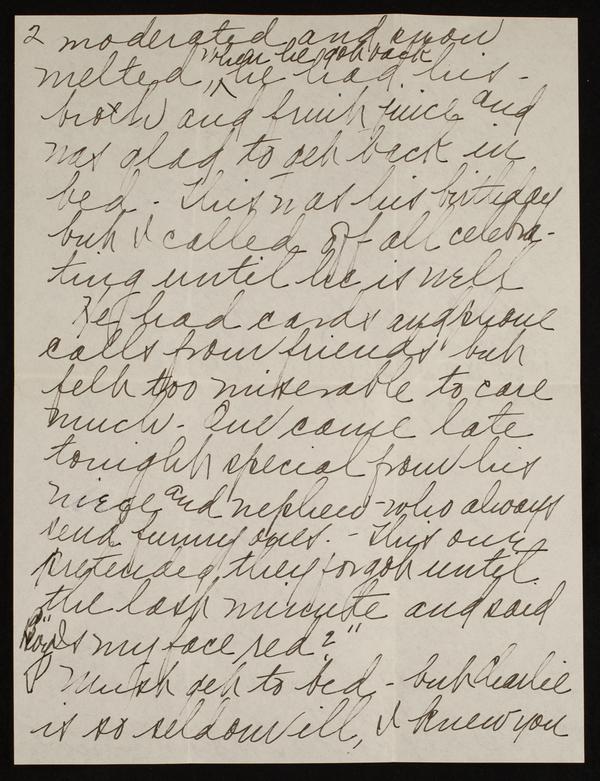 2 moderated and snow
when he got back
melted, he had his -
broth and fruit juice and
was glad to get back in
bed - This was his birthday
but I called off all celebra-
ting until he is well
He had cards and phone
calls from friends but
felt too miserable to care
much - One came late
tonight special from his
niece and nephew - who always
send funny ones. - This one
pretended they forgot until
the last minute and said
"Boy Is my face red?"
I must get to bed - but Charlie
is so seldom ill, I knew you